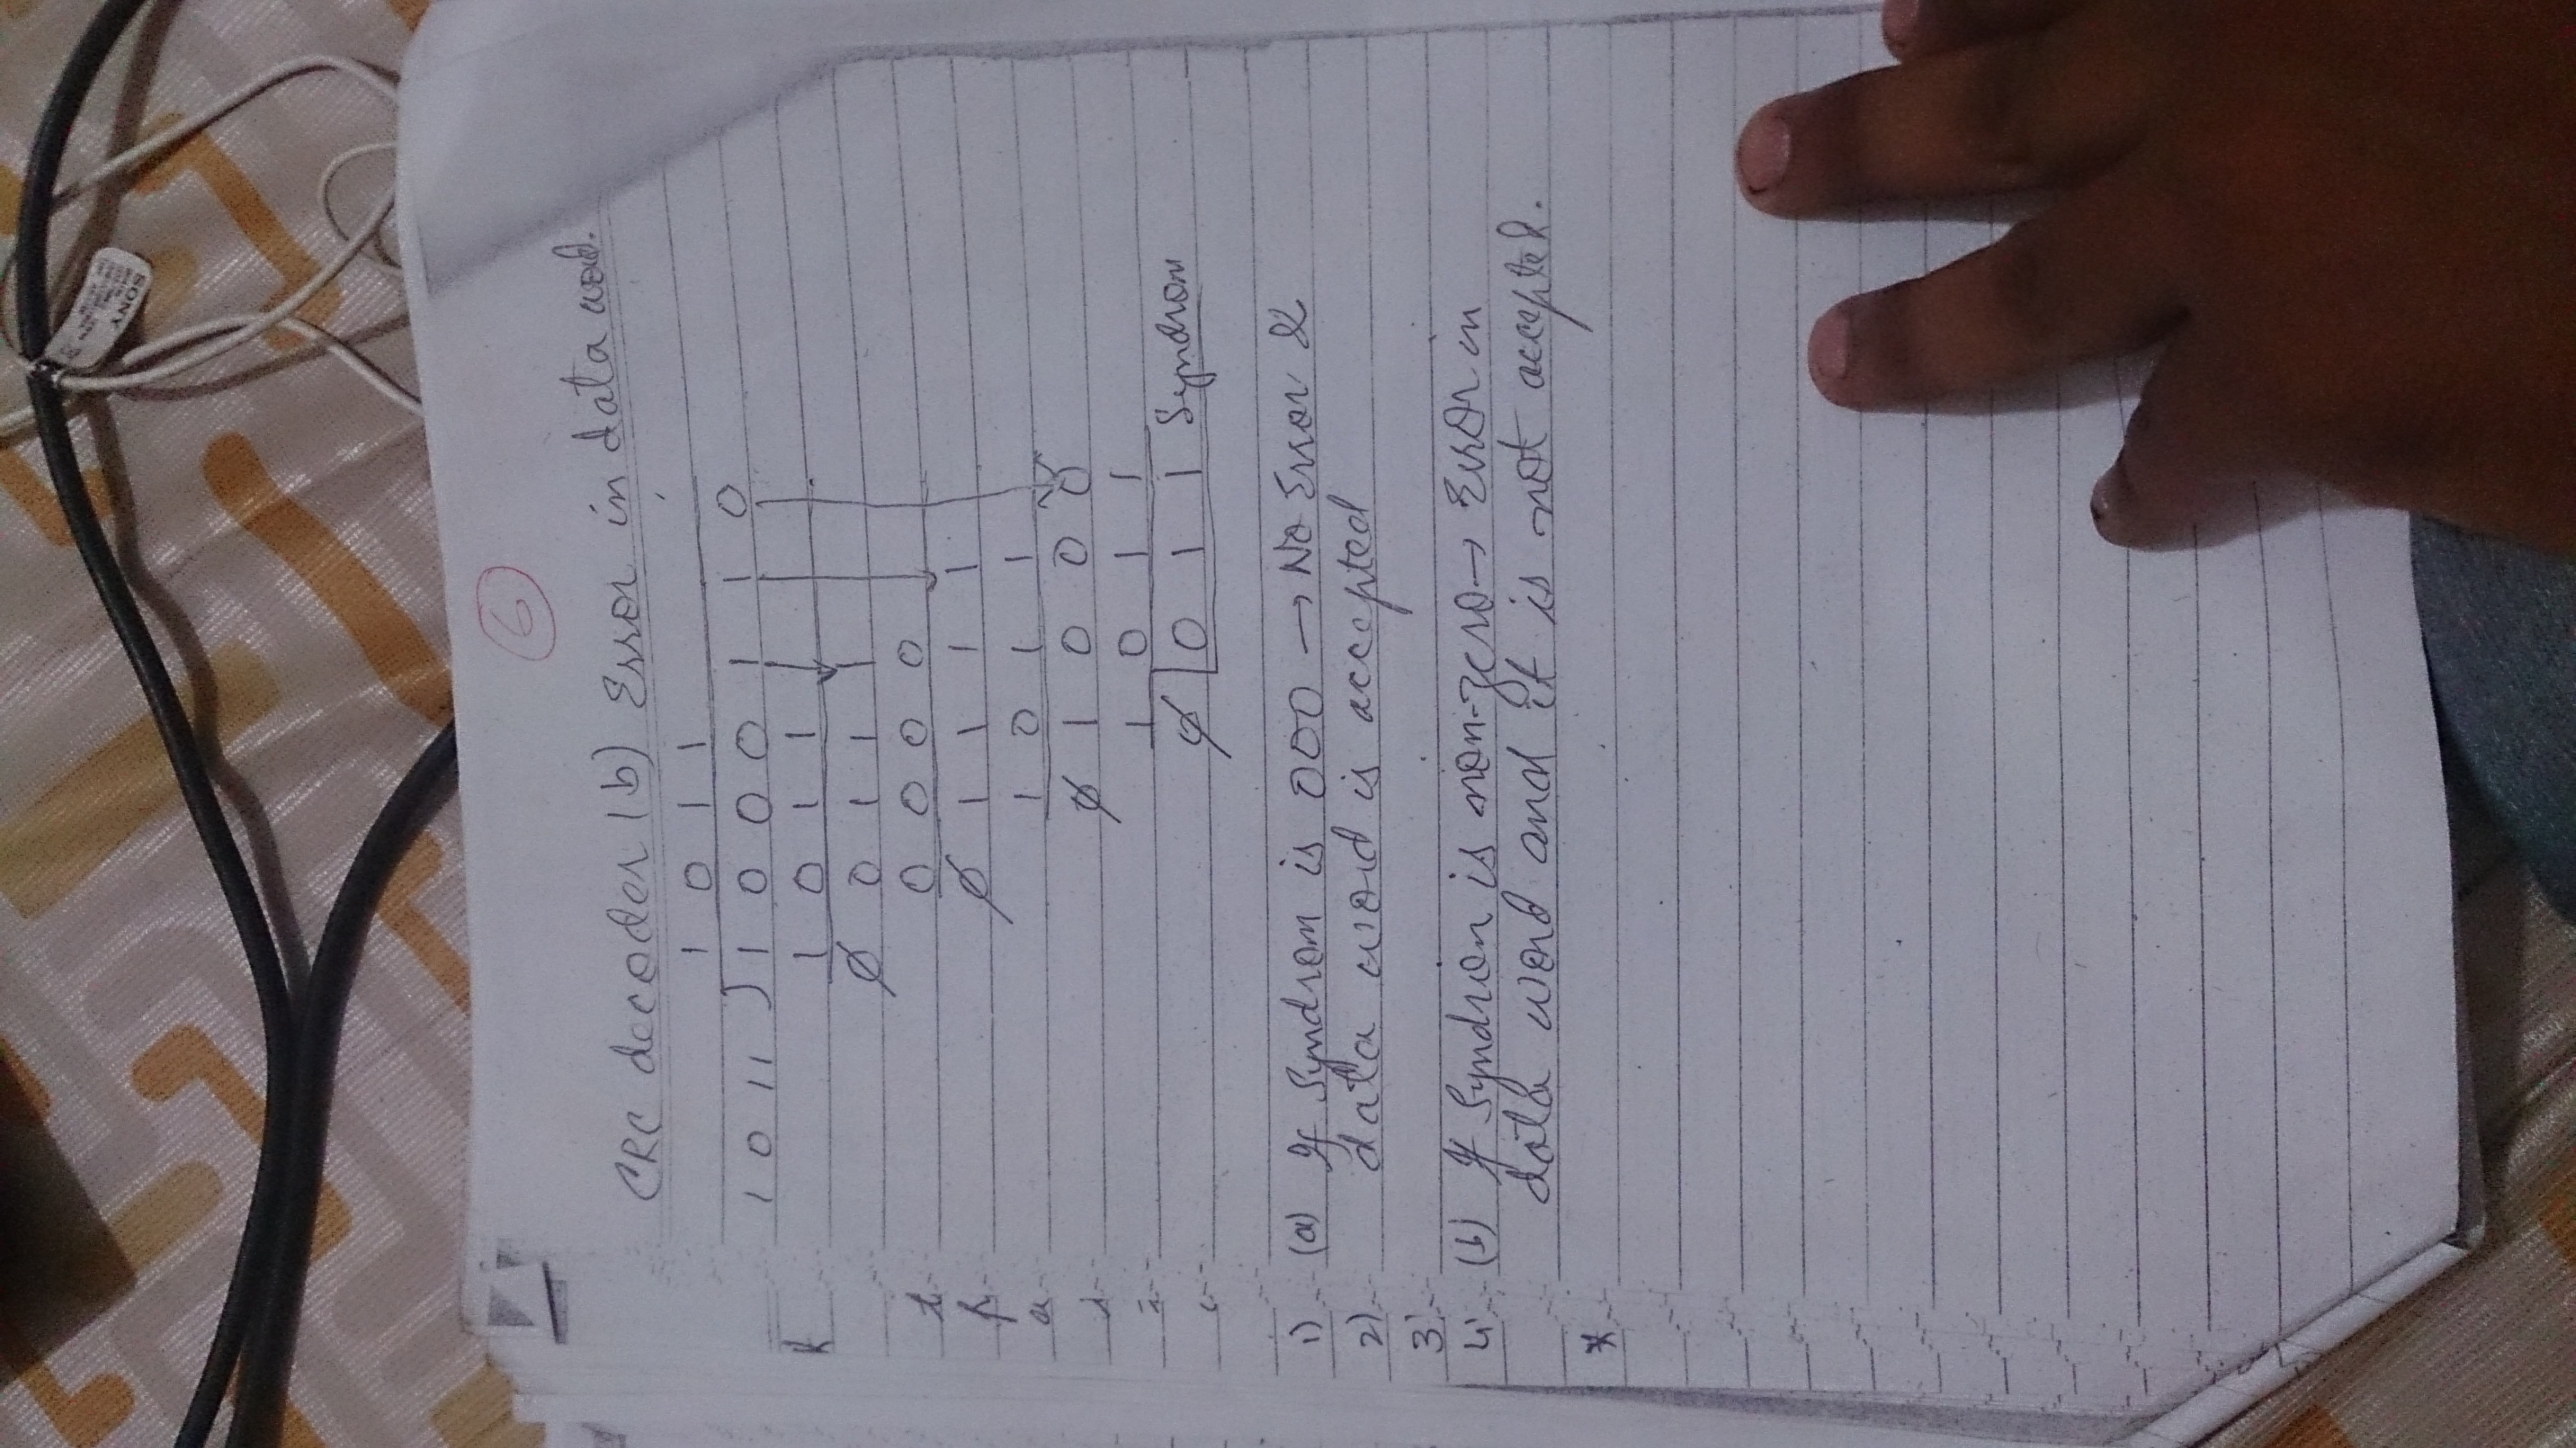 6
CRC decoder (b) Error in data word.
1 0 1 1
1 0 1 1 ) 1 0 0 0 1 1 0
1 0 1 1
0 0 1 1 1
0 0 0 0
0 1 1 1 1
1 0 1 1
0 1 0 0 0
1 0 1 1
0 0 1 1 Syndrom
(a) If Syndrom is 000 → No Error &
data word is accepted
(b) If Syndrom is non-zero → Error in
data word and it is not accepted.
1)
2)
3)
4)
*
SONY